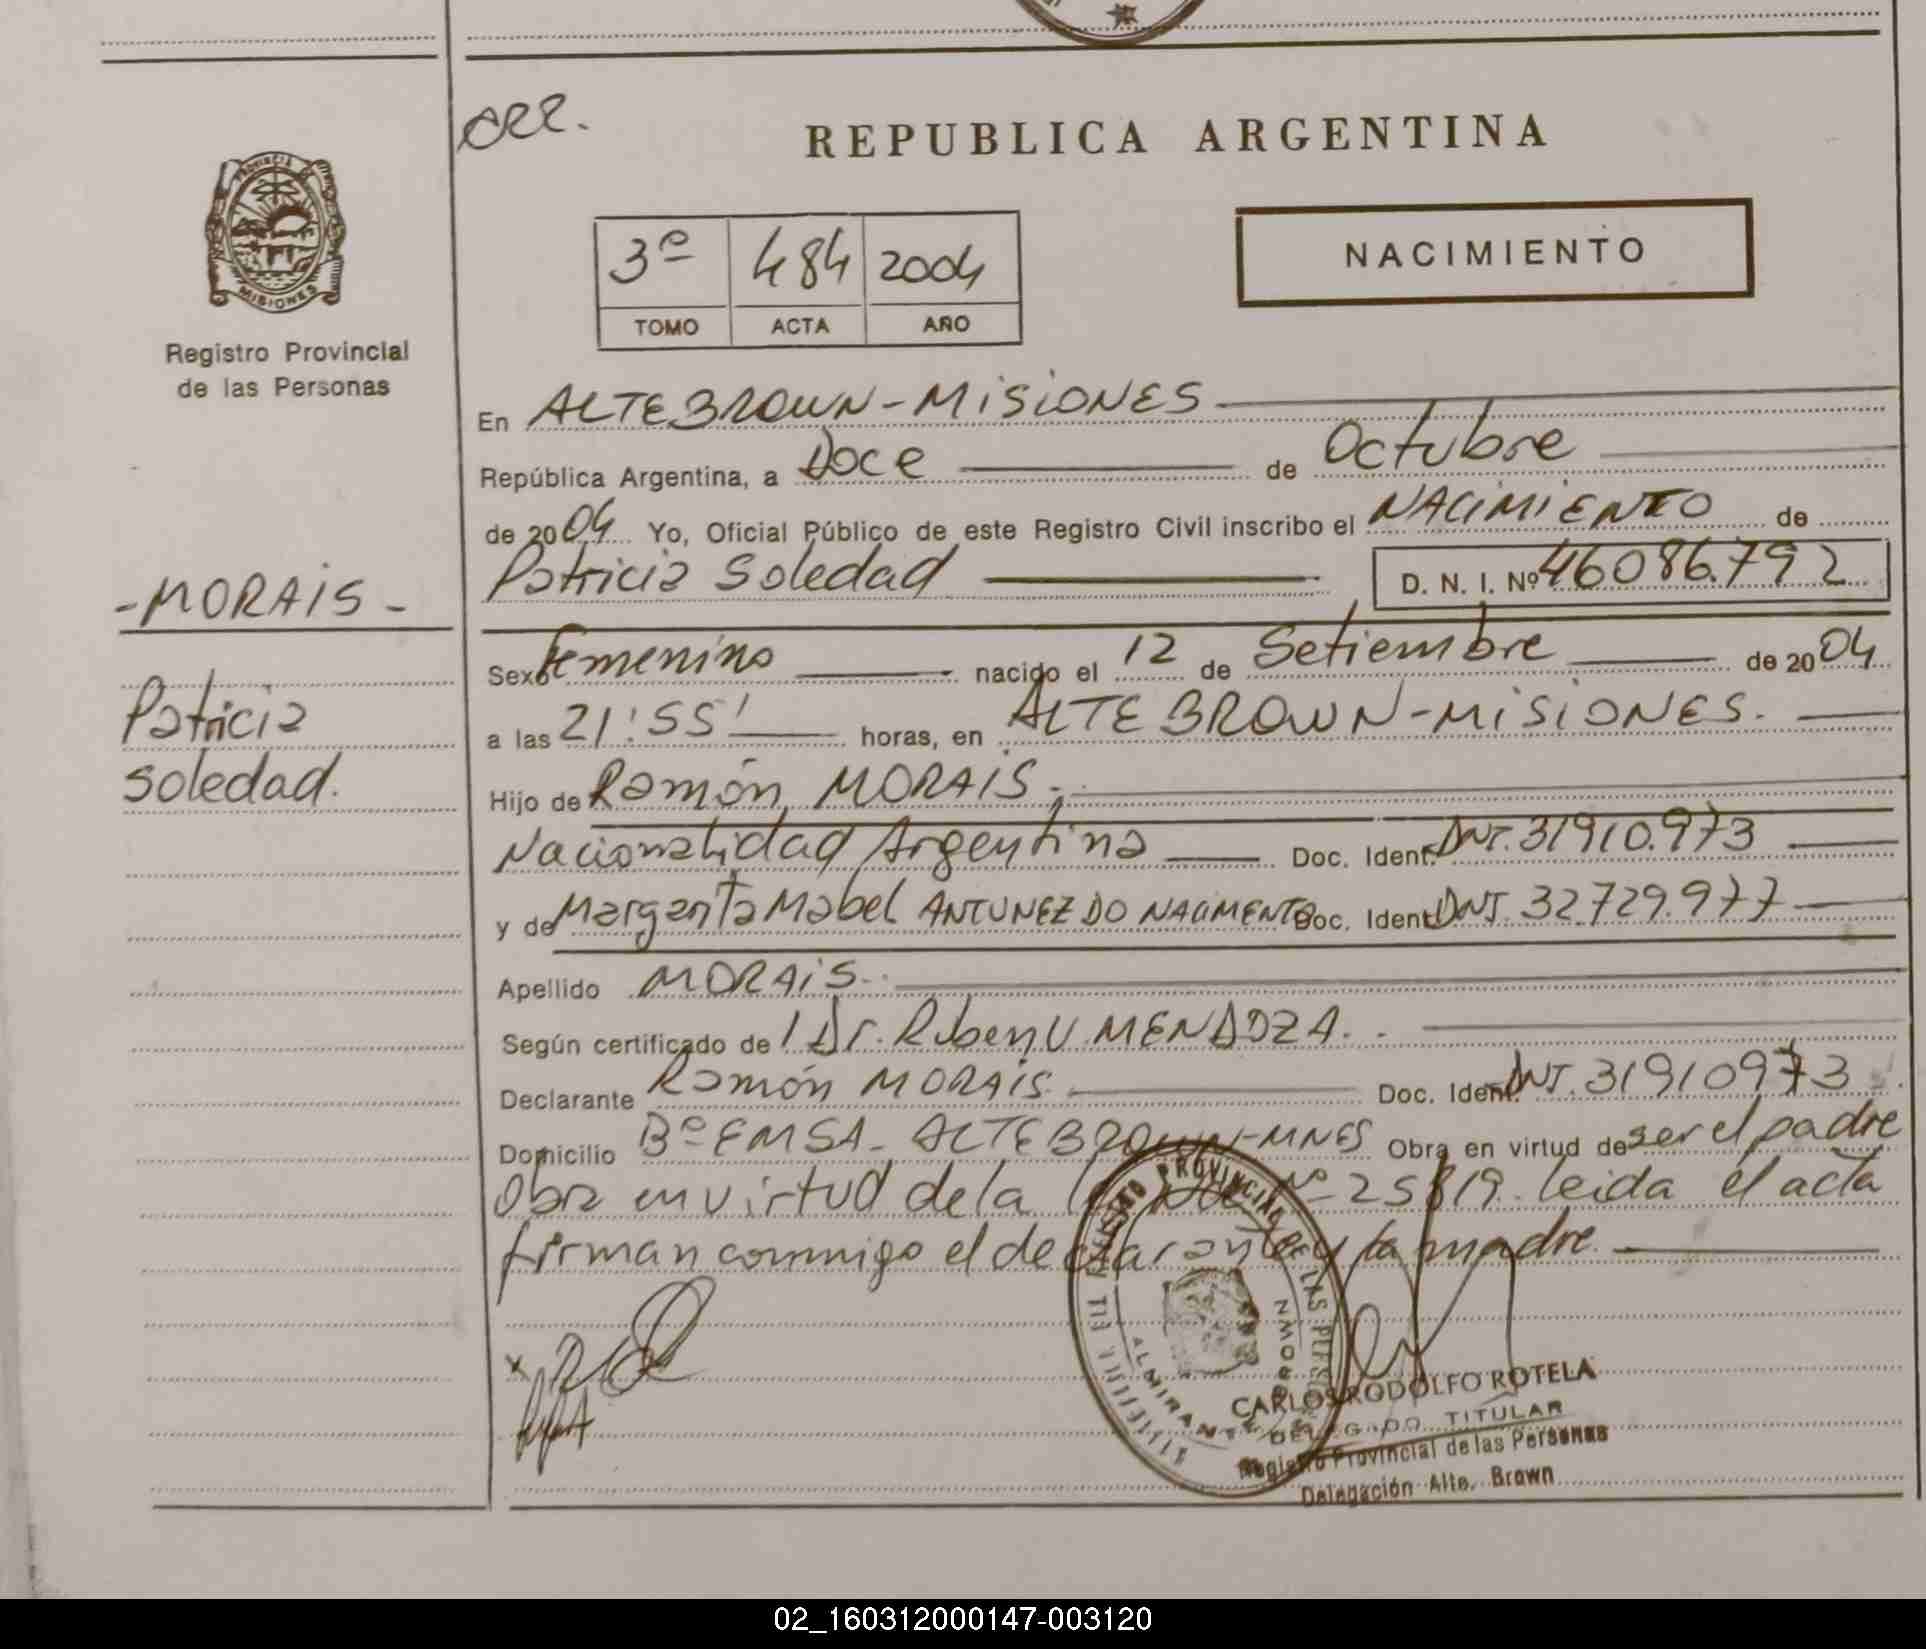 CRR.
REPUBLICA ARGENTINA
PROVINCIA
MISIONES
Registro Provincial
de las Personas
3º 484 2004
TOMO ACTA AÑO
NACIMIENTO
En ALTE BROWN-MISIONES
República Argentina, a Doce de Octubre
de 2004 Yo, Oficial Público de este Registro Civil inscribo el NACIMIENTO de
Patricia Soledad D. N. I. Nº 46086.792
-MORAIS-
Patricia
Soledad.
Sexo Femenino nacido el 12 de Setiembre de 2004
a las 21:55' horas, en ALTE BROWN-MISIONES.
Hijo de Ramón MORAIS.
Nacionalidad Argentina Doc. Ident. DNI. 31910.973
y de Margarita Mabel ANTUNEZ DO NACIMENTO Doc. Ident. DNI. 32729.977
Apellido MORAIS.
Según certificado de l Dr. Ruben V. MENDOZA.
Declarante Ramón MORAIS. Doc. Ident. DNI. 31910973
Domicilio Bº EMSA- ALTE BROWN-MNES Obra en virtud de ser el padre
Obra en virtud de la Nº 25819. leida el acta
firman conmigo el declarante y la madre.
REGISTRO PROVINCIAL DE LAS
ALMIRANTE BROWN
CARLOS RODOLFO ROTELA
DELEGADO TITULAR
Registro Provincial de las Personas
Delegación Alte. Brown
02_160312000147-003120